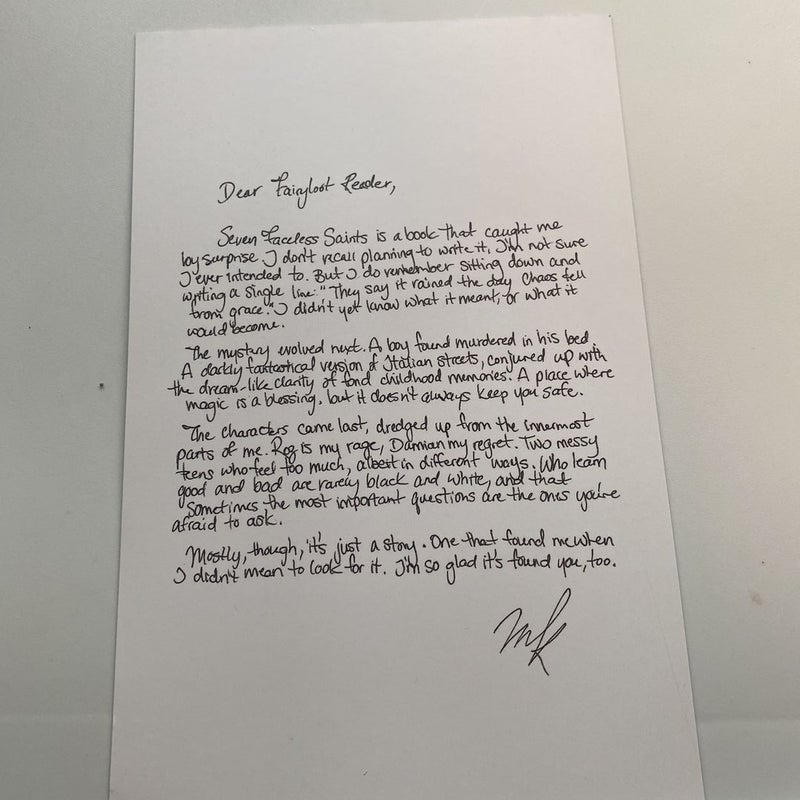 Dear Fairyloot Reader,
Seven Faceless Saints is a book that caught me
by surprise. I don't recall planning to write it, I'm not sure
I ever intended to. But I do remember sitting down and
writing a single line: "They say it rained the day Chaos fell
from grace." I didn't yet know what it meant, or what it
would become.
The mystery evolved next. A boy found murdered in his bed.
A darkly fantastical version of Italian streets, conjured up with
the dream-like clarity of fond childhood memories. A place where
magic is a blessing, but it doesn't always keep you safe.
The characters came last, dredged up from the innermost
parts of me. Roz is my rage, Damian my regret. Two messy
teens who feel too much, albeit in different ways. Who learn
good and bad are rarely black and white, and that
sometimes the most important questions are the ones you're
afraid to ask.
Mostly, though, it's just a story. One that found me when
I didn't mean to look for it. I'm so glad it's found you, too.
MK